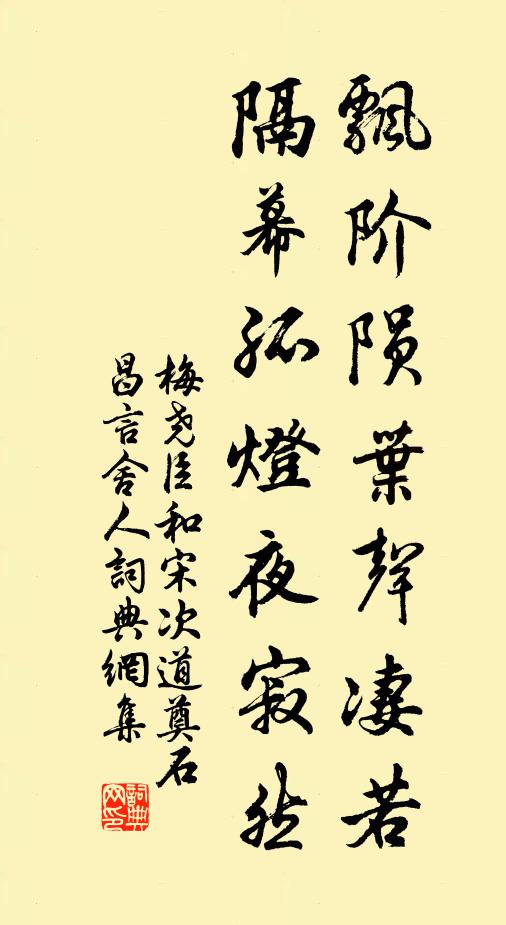 飄阶陨葉聲淒若
隔幕孤燈夜寂然
梅尧臣和宋次道奠石
昌言舍人詞典網集
詞典网印